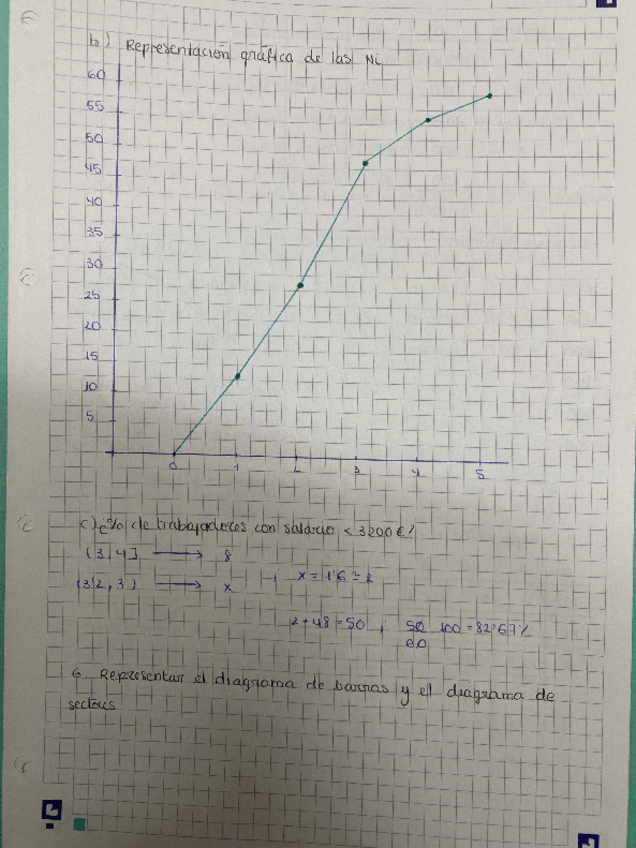 b) Representación gráfica de las Ni
60
55
50
45
40
35
30
25
20
15
10
5
0 1 2 3 4 5
c) ¿% de trabajadores con salario < 3200€?
(3,4] → 8
(3'2,3) → x ; x = 1'6 ≈ 2
2+48=50 ; 50/60 100 = 82'67%
6. Representar el diagrama de barras y el diagrama de
sectores